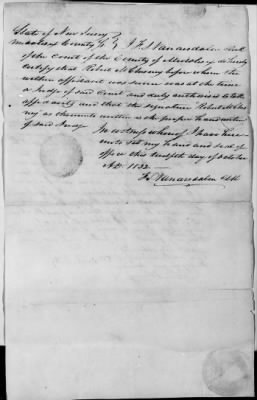 State of New Jersey
Middlesex County } I F. S Vanarsdalen Clerk
of the Court of the County of Middlesex do hereby
Certify that Robert M Chesney before whom the
within affidavit was sworn was at the time
a Judge of said Court and duly authorised to take
affidavits and that the signature Robert M Ches
ny as thereunto written is the proper hand writing
of said Judge
In witness whereof I have here
unto set my hand and seal of
office this twelfth day of October
AD 1832
Vanarsdalen Clk